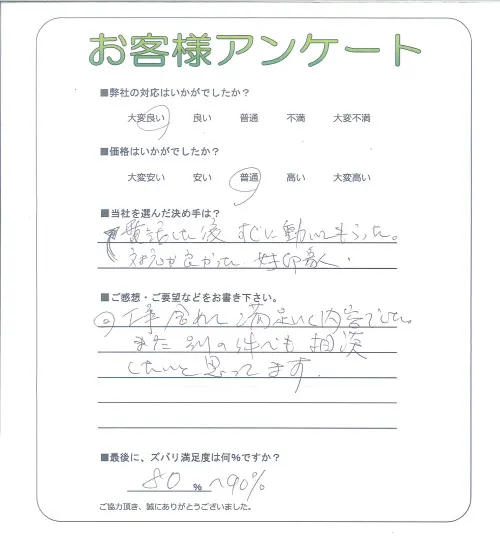 お客様アンケート
■弊社の対応はいかがでしたか？
大変良い 良い 普通 不満 大変不満
■価格はいかがでしたか？
大変安い 安い 普通 高い 大変高い
■当社を選んだ決め手は？
電話した後 すぐに動いてもらった。
対応が良かった 好印象
■ご感想・ご要望などをお書き下さい。
満足いく内容でした。
また別の件でも相談
したいと思ってます.
■最後に、ズバリ満足度は何%ですか？
80 % 〜90%
ご協力頂き、誠にありがとうございました。